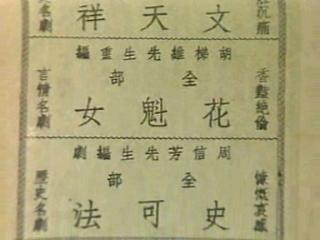 沉痛
文天祥
名劇
胡梯維先生重編
香豔絕倫
全部
花魁女
言情名劇
周信芳先生編劇
慷慨哀感
全部
史可法
歷史名劇